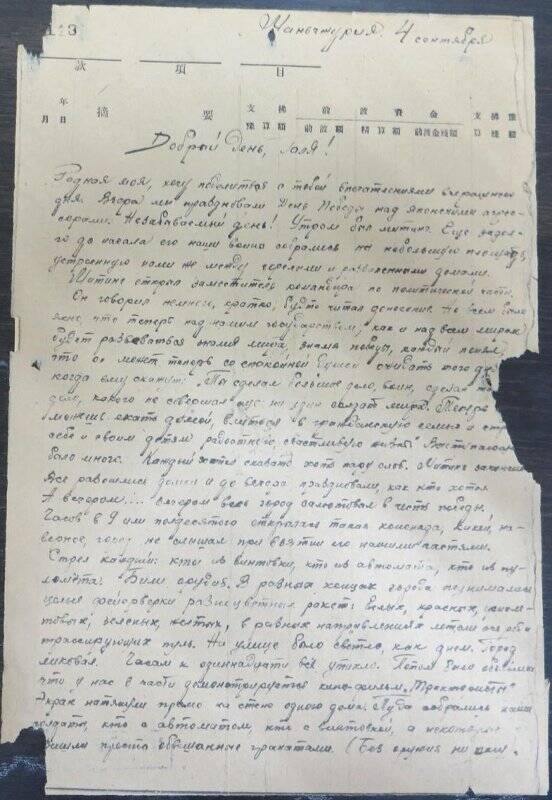 113
Маньчжурия. 4 сентября
款 項 目
年 月 日 摘 要 支 拂 豫 算 額 前 渡 費 金 前渡額 精算額 前渡金残額 支 拂 豫 算 残 額
Добрый день, Галя!
Родная моя, хочу поделиться с тобой впечатлениями вчерашнего
дня. Вчера мы праздновали День Победы над японскими агрес-
сорами. Незабываемый день! Утром был митинг. Еще задол-
го до начала его наши воины собрались на небольшую площадь,
устроенную нами же между горелыми и разваленными домами.
Митинг открыл заместитель командира по политической части.
Он говорил немного, кратко, будто читал донесение. Но всем было
ясно, что теперь над нашим государством, как и над всем миром
будет развеваться знамя мира, знамя победы, каждый понял,
что он может теперь со спокойной душой ожидать того дня
когда ему скажут: "Ты сделал большое дело, воин, сделал
дело, какого не совершал еще ни один солдат мира. Теперь
можешь ехать домой, влиться в гражданскую семью и
себе и своим детям радостную, счастливую жизнь". Выступающих
было много. Каждый хотел сказать хоть пару слов. Митинг закончился
Все разошлись домой и до вечера праздновали, как кто хотел
А вечером... вечером весь город салютовал в честь победы.
Часов в 9 или полдесятого открылась такая канонада, какой, на-
верное, город не слышал при взятии его нашими частями.
Стрелял каждый: кто из винтовки, кто из автомата, кто из пу-
лемета. Били орудия. В разных концах города поднимались
целые фейерверки разноцветных ракет: белых, красных, фиоле-
товых, зеленых, желтых, в разных направлениях летели
трассирующих пуль. На улице было светло, как днем. Город
ликовал. Часам к одиннадцати всё утихло. Потом было объявлено
что у нас в части демонстрируется кинофильм "Трактористы"
Экран натянули прямо на стену одного дома. Туда собрались наши
солдаты, кто с автоматом, кто с винтовкой, а некоторые
пришли просто обвешанные гранатами. (Без оружия ни